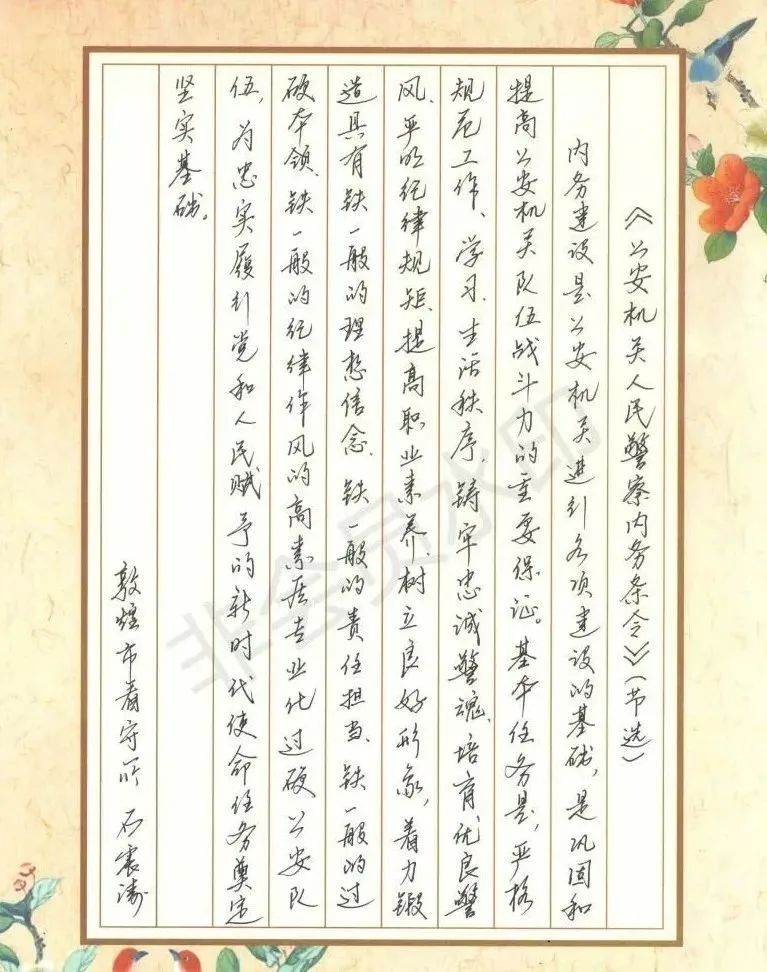 《公安机关人民警察内务条令》(节选)
内务建设是公安机关进行各项建设的基础,是巩固和
提高公安机关队伍战斗力的重要保证。基本任务是,严格
规范工作、学习、生活秩序,铸牢忠诚警魂、培育优良警
风、严明纪律规矩、提高职业素养、树立良好形象,着力锻
造具有铁一般的理想信念、铁一般的责任担当、铁一般的过
硬本领、铁一般的纪律作风的高素质专业化过硬公安队
伍,为忠实履行党和人民赋予的新时代使命任务奠定
坚实基础。
敦煌市看守所 石震涛
非会员水印